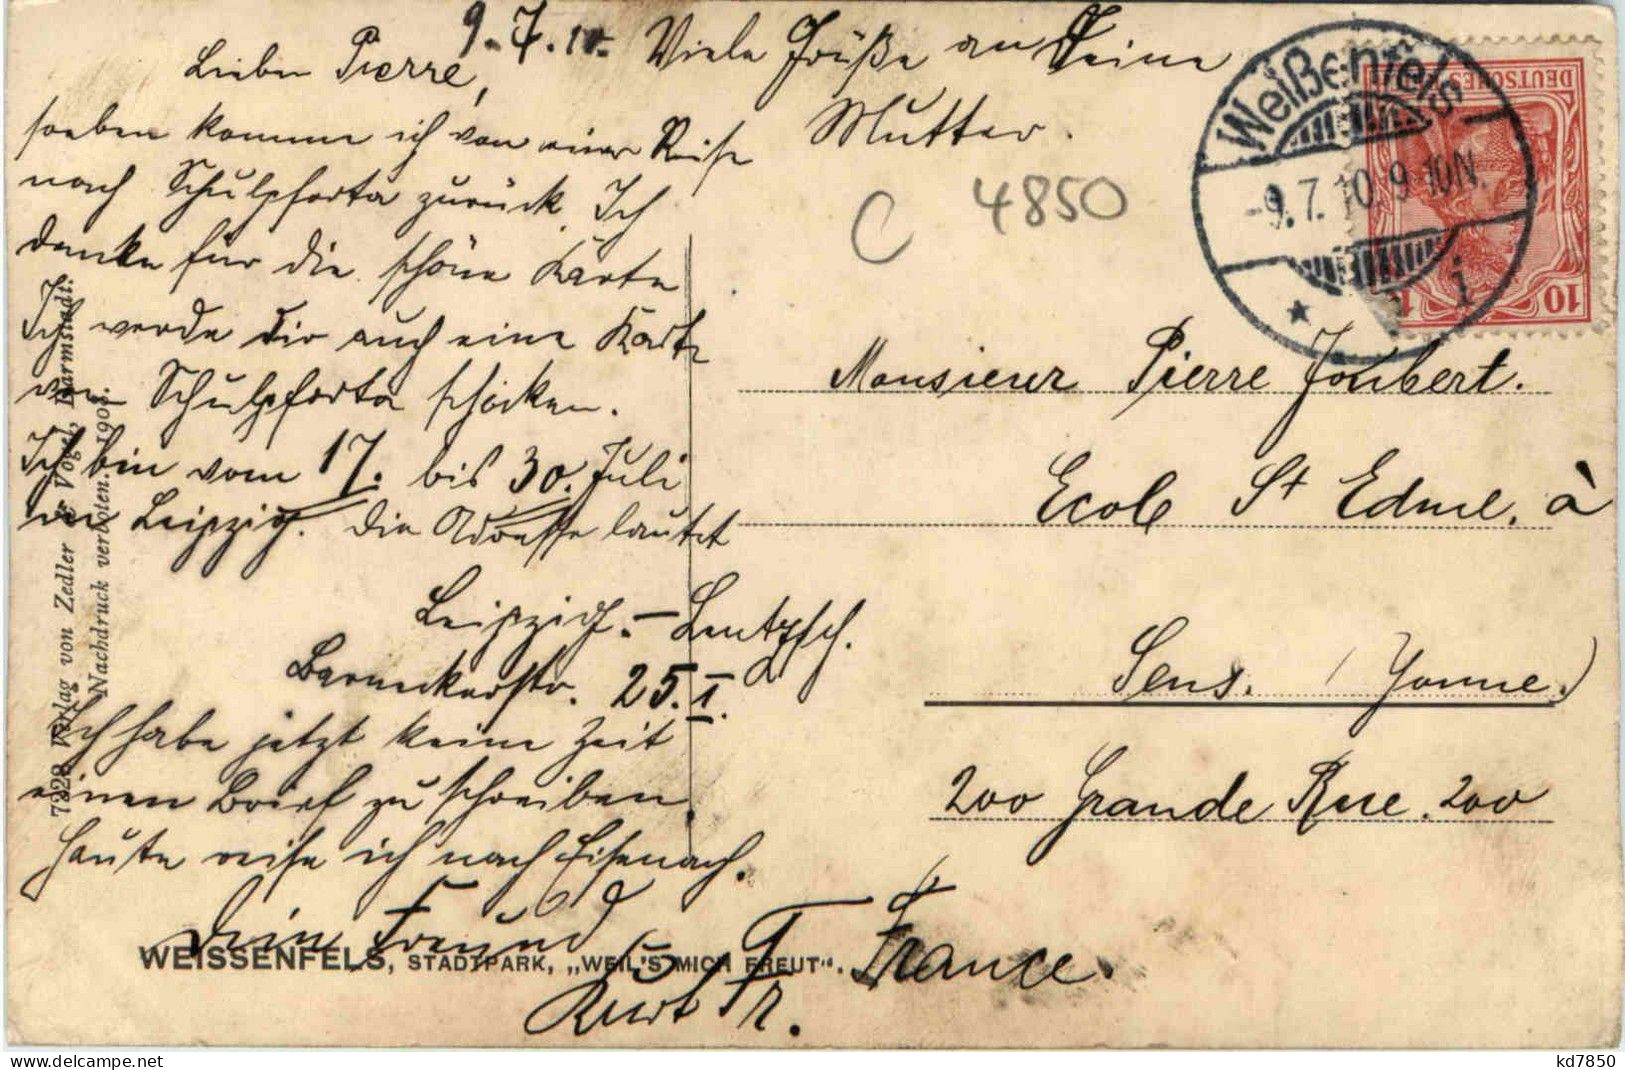 9.7.10.
Lieber Pierre,
soeben komme ich von einer Reise
nach Schulpforta zurück. Ich
danke für die schöne Karte
Ich werde dir auch eine Karte
von Schulpforta schicken.
Ich bin vom 17. bis 30. Juli
in Leipzig. Die Adresse lautet
Leipzig.-Leutzsch.
Barneckerstr. 25.I.
Ich habe jetzt keine Zeit
einen Brief zu schreiben.
Heute reise ich nach Eisenach.
Dein Freund
Kurt Fr.
Viele Grüße an Deine
Mutter.
C 4850
Weißenfels
-9.7.10.9-10N.
* i
DEUTSCHES
10
Monsieur Pierre Joubert.
Ecole St Edme, à
Sens. (Yonne.)
200 Grande Rue. 200
France.
7228 Verlag von Zedler & Vogel, Darmstadt.
Nachdruck verboten. 1908.
WEISSENFELS, STADTPARK, „WEIL'S MICH FREUT".
kd7850